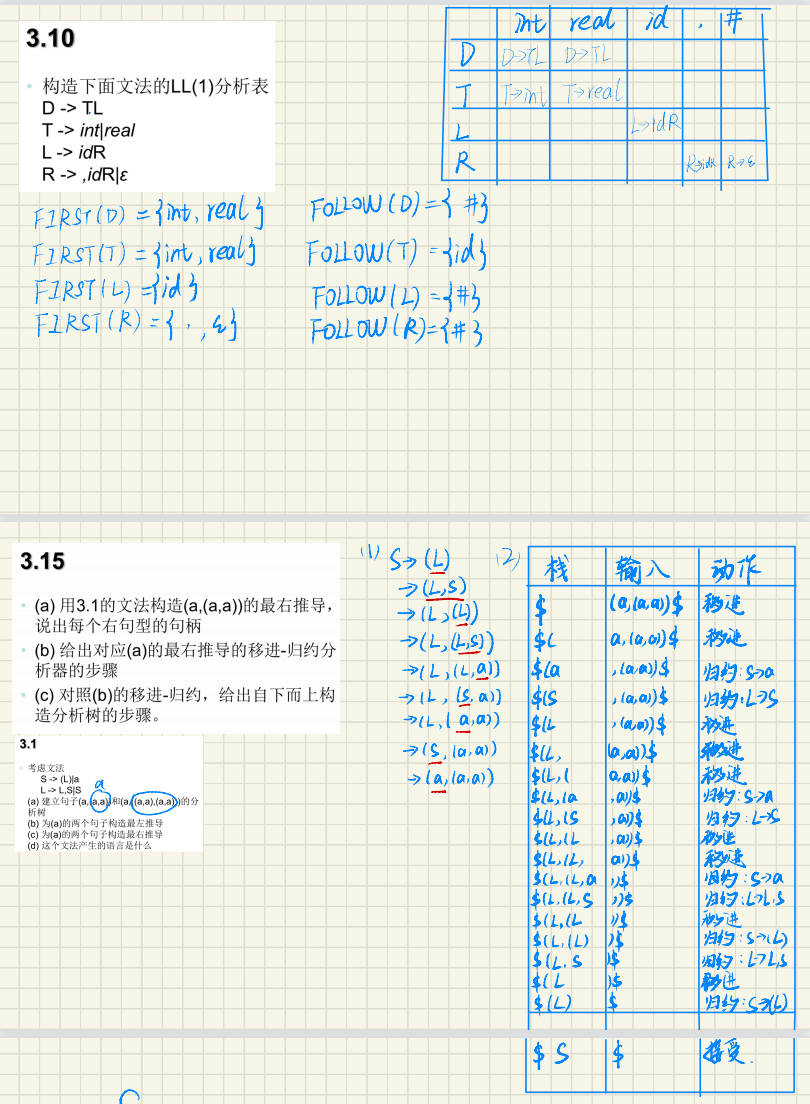 3.10
构造下面文法的LL(1)分析表
D -> TL
T -> int|real
L -> idR
R -> ,idR|ε
int real id , #
D D→TL D→TL
T T→int T→real
L L→idR
R R→,idR R→ε
FIRST(D) = {int, real} FOLLOW(D) = {#}
FIRST(T) = {int, real} FOLLOW(T) = {id}
FIRST(L) = {id} FOLLOW(L) = {#}
FIRST(R) = { , , ε} FOLLOW(R) = {#}
3.15
(a) 用3.1的文法构造(a,(a,a))的最右推导，
说出每个右句型的句柄
(b) 给出对应(a)的最右推导的移进-归约分
析器的步骤
(c) 对照(b)的移进-归约，给出自下而上构
造分析树的步骤。
3.1
考虑文法
S -> (L)|a
L -> L,S|S
a
(a) 建立句子(a,(a,a))和(a,((a,a),(a,a)))的分
析树
(b) 为(a)的两个句子构造最左推导
(c) 为(a)的两个句子构造最右推导
(d) 这个文法产生的语言是什么
(1) S→(L)
→(L,S)
→(L,(L))
→(L,(L,S))
→(L,(L,a))
→(L,(S,a))
→(L,(a,a))
→(S,(a,a))
→(a,(a,a))
(2) 栈 输入 动作
$ (a,(a,a))$ 移进
$( a,(a,a))$ 移进
$(a ,(a,a))$ 归约:S→a
$(S ,(a,a))$ 归约:L→S
$(L ,(a,a))$ 移进
$(L, (a,a))$ 移进
$(L,( a,a))$ 移进
$(L,(a ,a))$ 归约:S→a
$(L,(S ,a))$ 归约:L→S
$(L,(L ,a))$ 移进
$(L,(L, a))$ 移进
$(L,(L,a ))$ 归约:S→a
$(L,(L,S ))$ 归约:L→L,S
$(L,(L ))$ 移进
$(L,(L) )$ 归约:S→(L)
$(L,S )$ 归约:L→L,S
$(L )$ 移进
$(L) $ 归约:S→(L)
$S $ 接受.